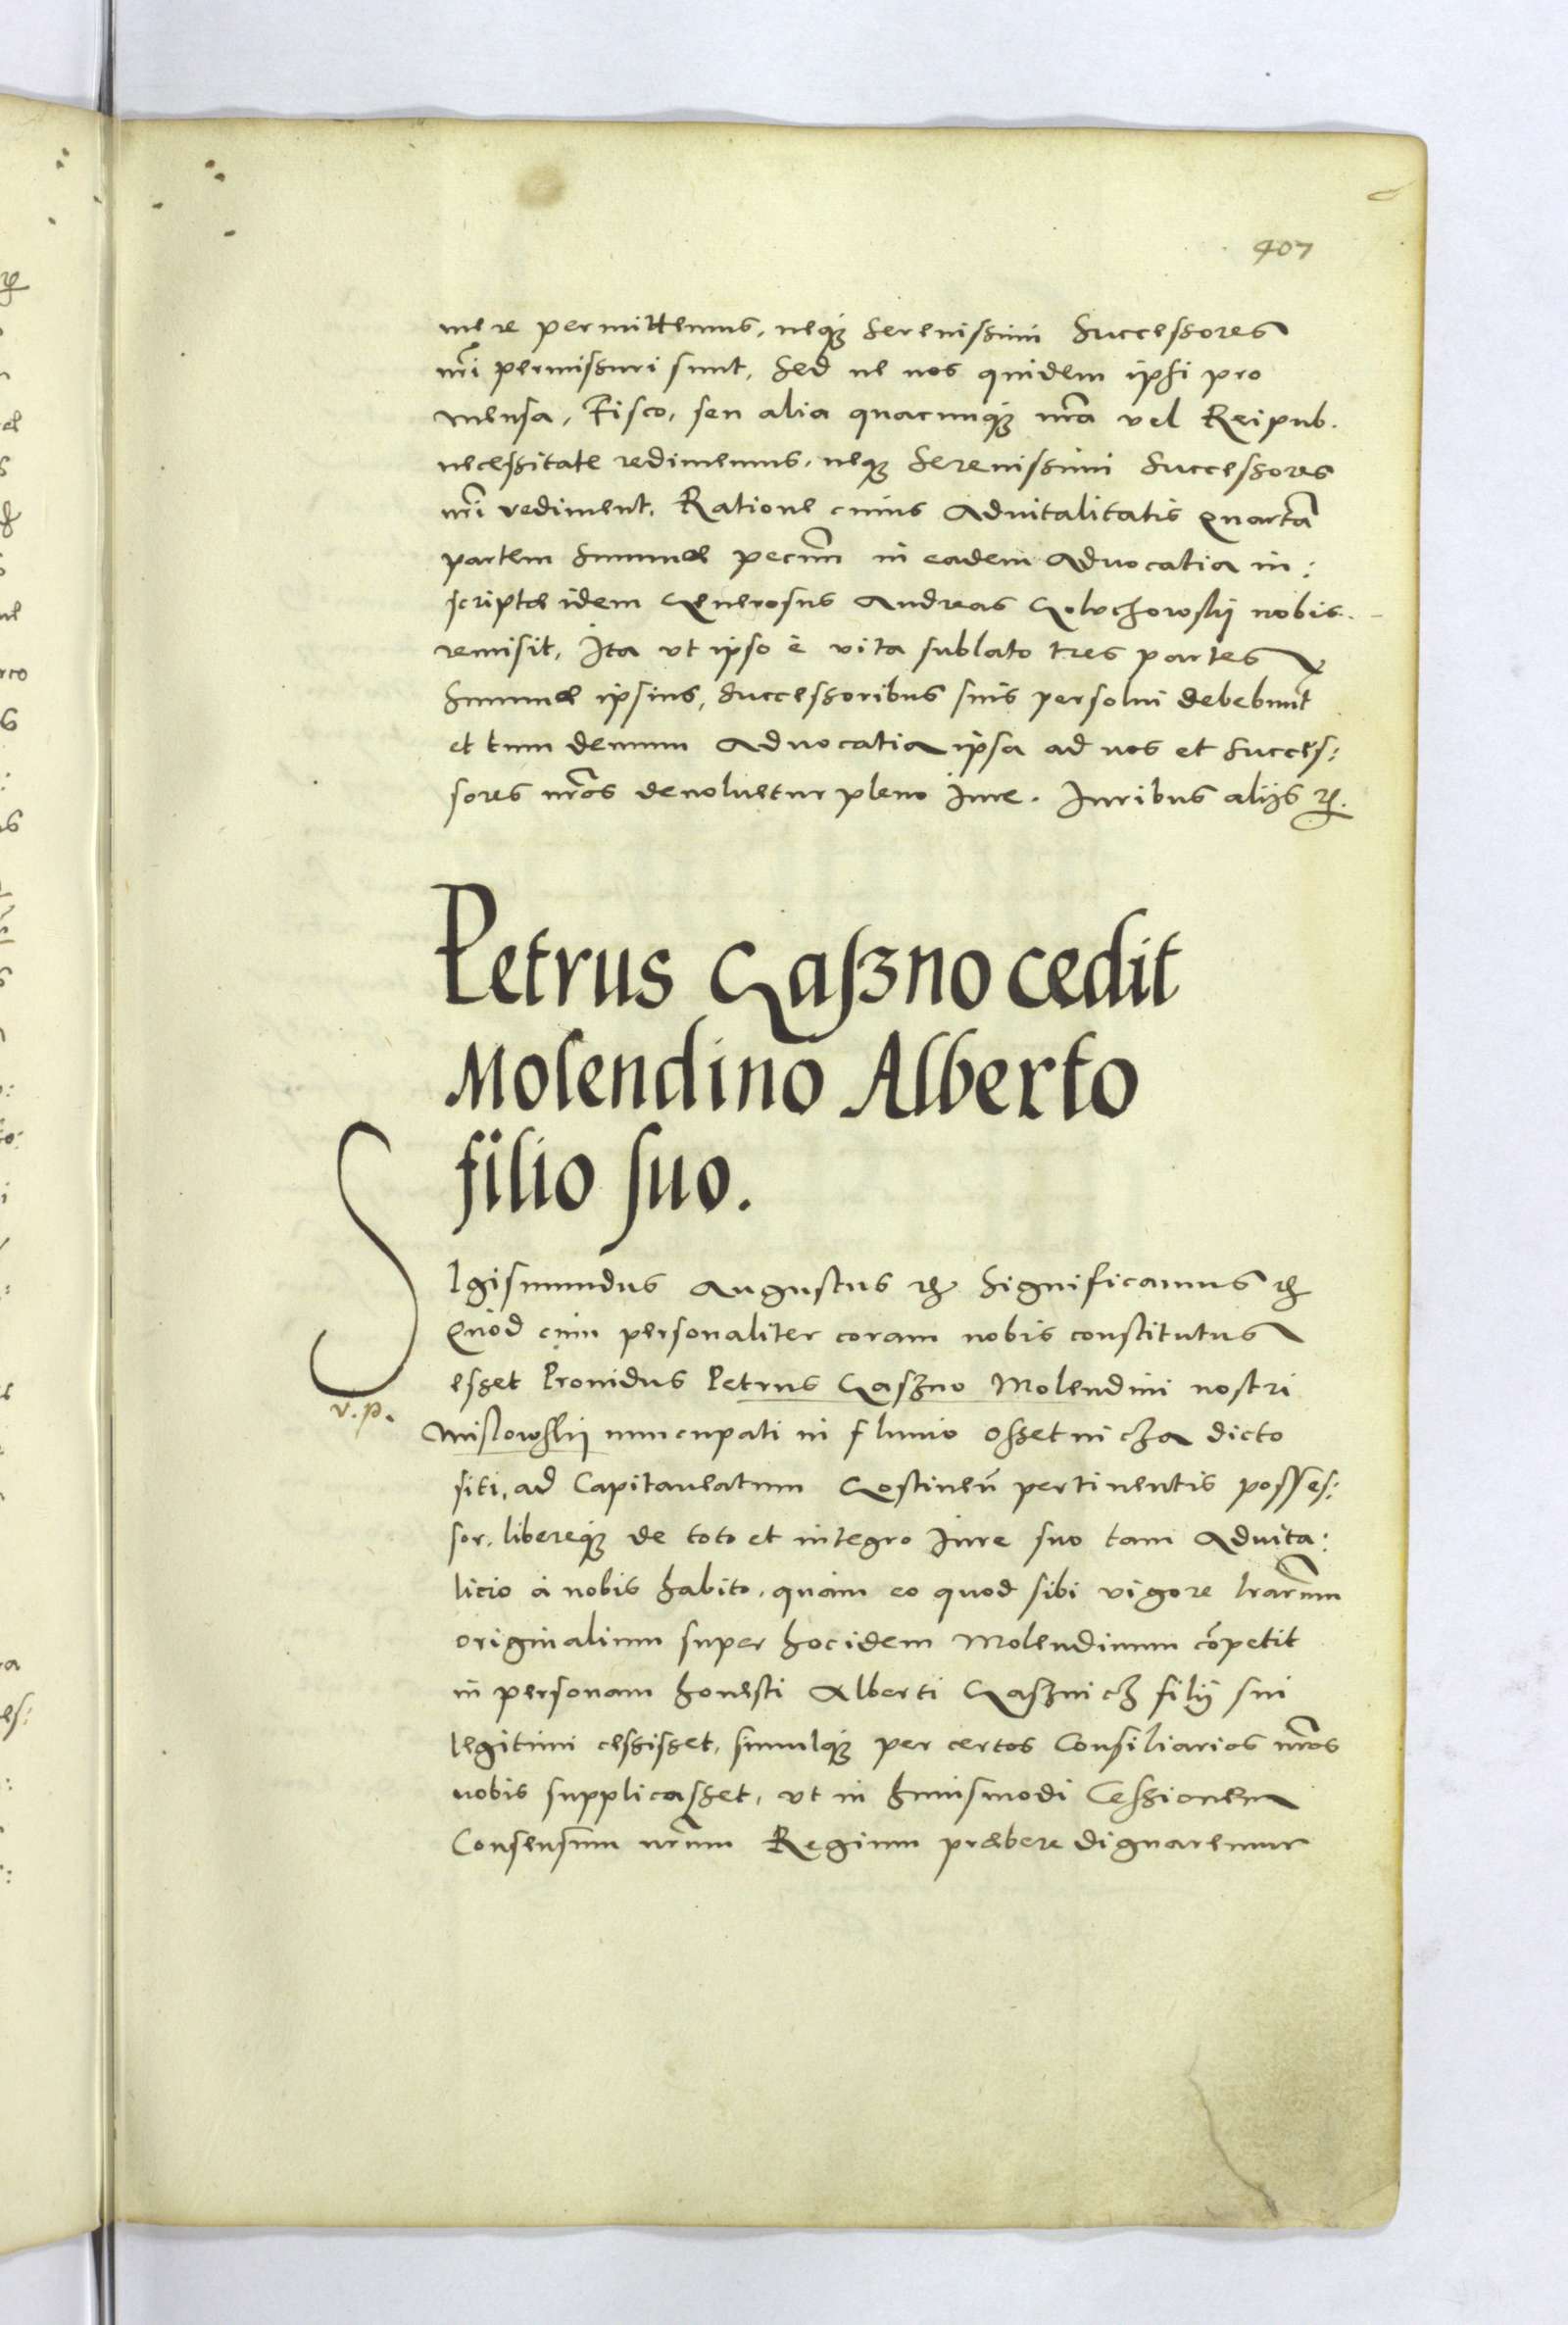 407
mere permittemus, neq3 Serenissimi Successores
nri permissuri sunt, Sed ne nos quidem ipsi pro
mensa, Fisco, seu alia quacunq3 nra vel Reipub.
necessitate redimemus, neq3 Serenissimi Successores
nri rediment. Ratione cuius Aduitalitatis Quartã
partem Summæ pecun in eadem Aduocatia in:
scriptæ idem Generosus Andreas Goluchowskij nobis
remisit, Ita vt ipso è vita sublato tres partes
Summæ ipsius, Successoribus suis persolui debebunt
et tum demum Aduocatia ipsa ad nos et Succes:
sores nros deuoluetur pleno Iure. Iuribus alijs etc.
Petrus Gaszno cedit
Molendino Alberto
filio suo.
SIgismundus Augustus etc Significamus etc
Quod cum personaliter coram nobis constitutus
esset Prouidus Petrus Gaszno Molendini nostri
v. p.
Mislowskij nuncupati in fluuio Ossetnicza dicto
siti, ad Capitaneatum Gostineñ pertinentis posses:
sor, libereq3 de toto et integro Iure suo tam Aduita:
licio à nobis habito, quàm eo quod sibi vigore lrarum
originalium super hoc idem Molendinum cõpetit
in personam honesti Alberti Gasznicz filij sui
legitimi cessisset, simulq3 per certos Consiliarios nros
nobis supplicasset, vt in huiusmodi Cessionem
Consensum nrum Regium præbere dignaremur